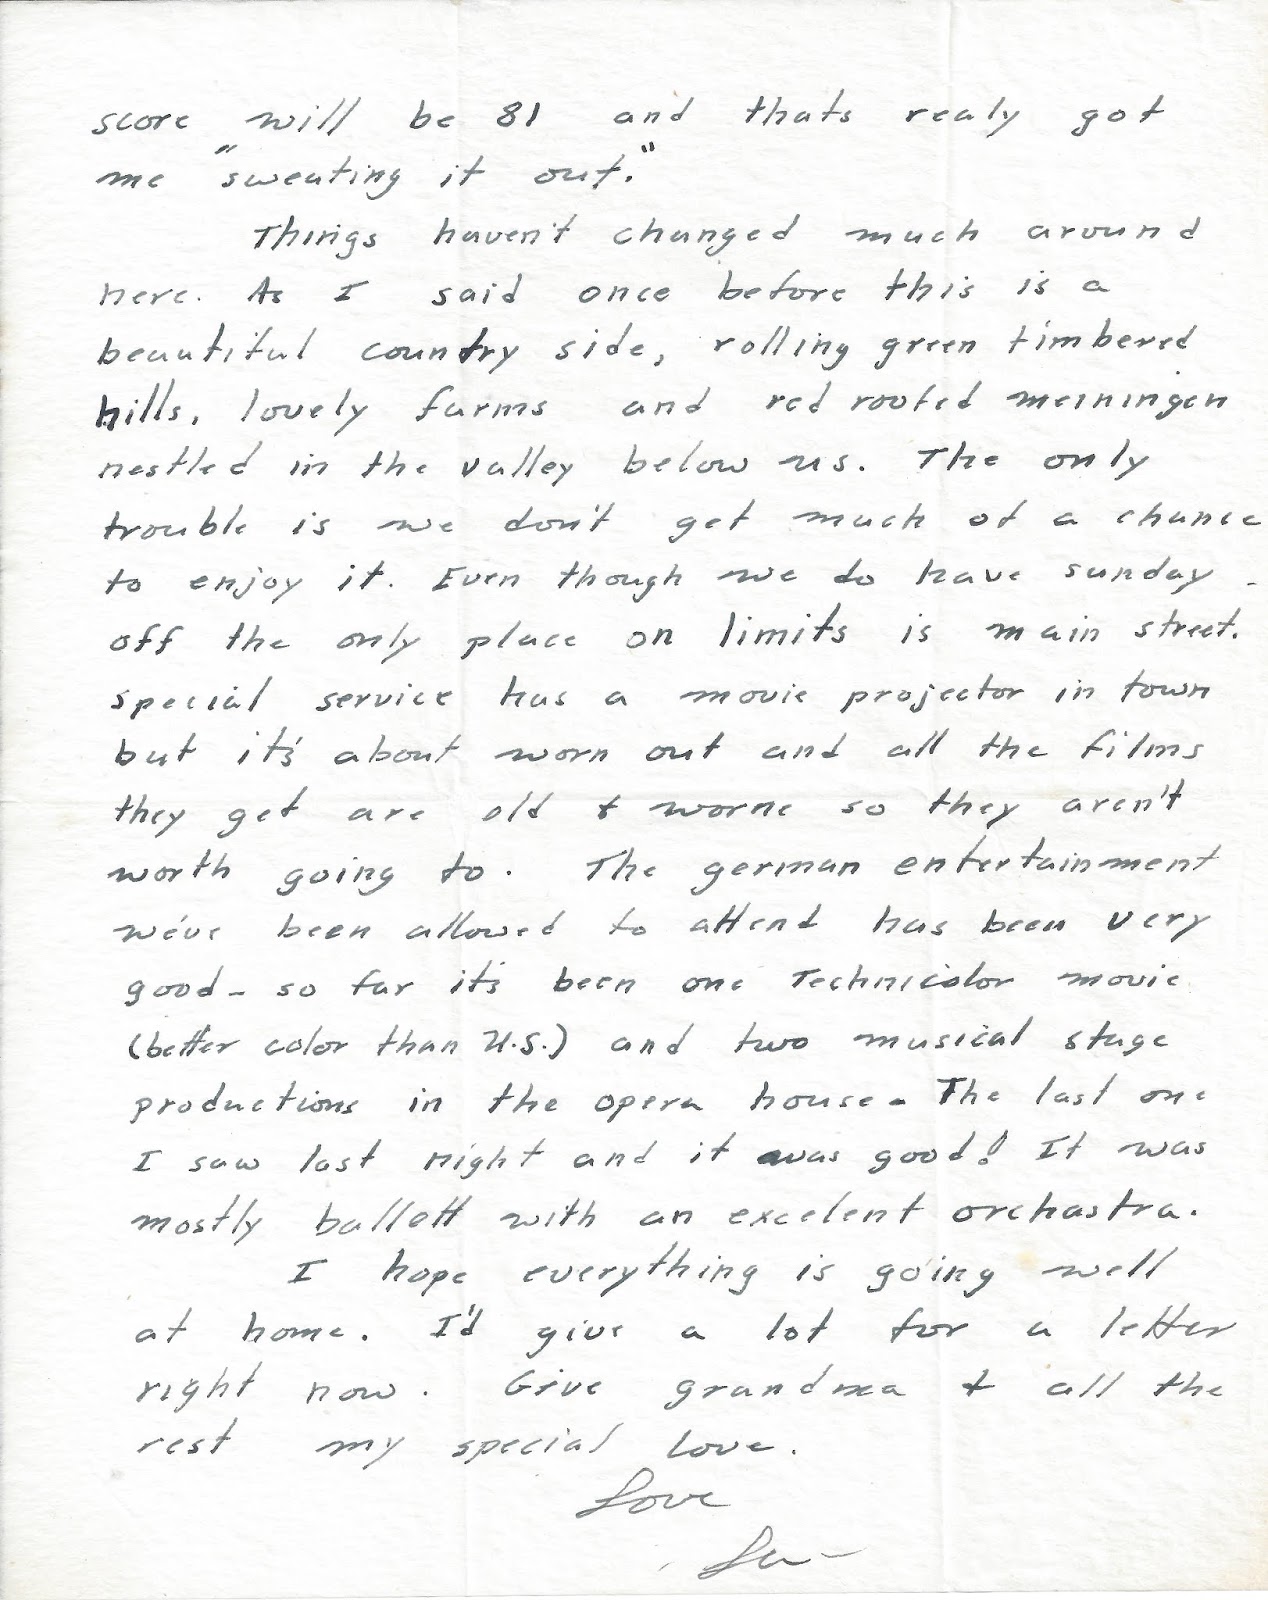 score will be 81 and thats realy got
me "sweating it out."
Things haven't changed much around
here. As I said once before this is a
beautiful country side, rolling green timbered
hills, lovely farms and red roofed meiningen
nestled in the valley below us. The only
trouble is we don't get much of a chance
to enjoy it. Even though we do have sunday
off the only place on limits is main street.
special service has a movie projector in town
but it's about worn out and all the films
they get are old & worne so they aren't
worth going to. The german entertainment
we've been allowed to attend has been very
good - so far it's been one Technicolor movie
(better color than U.S.) and two musical stage
productions in the opera house - The last one
I saw last night and it was good! It was
mostly ballett with an excelent orchastra.
I hope everything is going well
at home. I'd give a lot for a letter
right now. Give grandma & all the
rest my special love.
Love